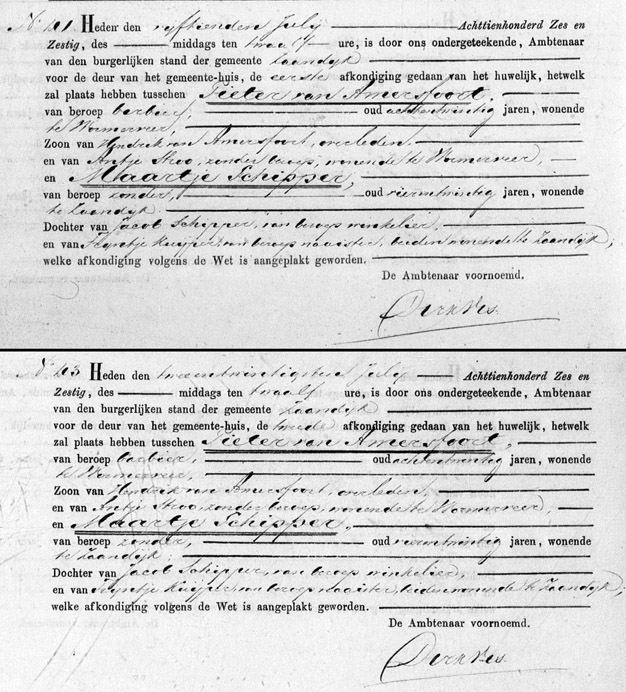 No 41 Heden den vyftienden July Achttienhonderd Zes en
Zestig, des middags ten twaalf ure, is door ons ondergeteekende, Ambtenaar
van den burgerlijken stand der gemeente Zaandyk
voor de deur van het gemeente-huis, de eerste afkondiging gedaan van het huwelijk, hetwelk
zal plaats hebben tusschen Pieter van Amersfoort,
van beroep barbier, oud achtentwintig jaren, wonende
te Wormerveer,
Zoon van Hendrik van Amersfoort, overleden,
en van Antje Stroo, zonder beroep, wonende te Wormerveer,
en Maartje Schipper,
van beroep zonder, oud vierentwintig jaren, wonende
te Zaandyk.
Dochter van Jacob Schipper, van beroep winkelier,
en van Tryntje Kuyper, van beroep naaister, beiden wonende te Zaandyk;
welke afkondiging volgens de Wet is aangeplakt geworden.
De Ambtenaar voornoemd.
Dirk Ves.
No 43 Heden den tweeentwintigsten July Achttienhonderd Zes en
Zestig, des middags ten twaalf ure, is door ons ondergeteekende, Ambtenaar
van den burgerlijken stand der gemeente Zaandyk
voor de deur van het gemeente-huis, de tweede afkondiging gedaan van het huwelijk, hetwelk
zal plaats hebben tusschen Pieter van Amersfoort,
van beroep barbier, oud achtentwintig jaren, wonende
te Wormerveer,
Zoon van Hendrik van Amersfoort, overleden,
en van Antje Stroo, zonder beroep, wonende te Wormerveer,
en Maartje Schipper,
van beroep zonder, oud vierentwintig jaren, wonende
te Zaandyk;
Dochter van Jacob Schipper, van beroep winkelier,
en van Tryntje Kuyper, van beroep naaister, beiden wonende te Zaandyk;
welke afkondiging volgens de Wet is aangeplakt geworden.
De Ambtenaar voornoemd.
Dirk Ves.